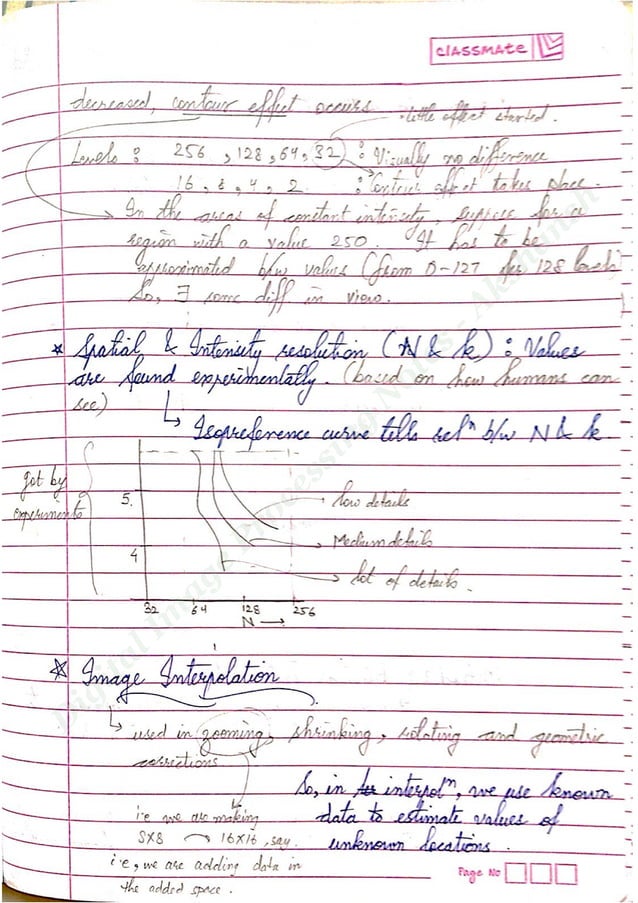 classmate
decreased, contour effect occurs
little effect started.
Levels : 256 , 128, 64, 32 : Visually no difference
16, 8, 4, 2 : Contour effect takes place.
In the areas of constant intensity, suppose for a
region with a value 250. It has to be
approximated b/w values (from 0-127 for 128 levels)
So, ∃ some diff in view.
* Spatial & Intensity resolution (N & k) : Values
are found experimentally. (based on how humans can
see)
↳ Isopreference curve tells relⁿ b/w N & k.
Got by
experiments
5
4
low details
Medium details
lot of details.
32 64 128 256
N →
* Image Interpolation
↳ used in zooming, shrinking, rotating and geometric
corrections
So, in interpolⁿ, we use known
data to estimate values of
unknown locations.
i.e we are making
8X8 → 16X16, say.
i.e, we are adding data in
the added space.
Page No
Digital Image Processing Notes - Akanksh